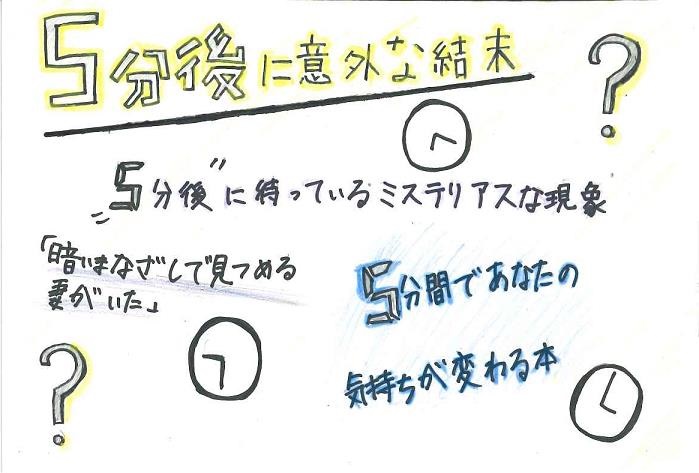 5分後に意外な結末
?
"5分後"に待っているミステリアスな現象
「暗いまなざしで見つめる
妻がいた」
5分間であなたの
気持ちが変わる本
?